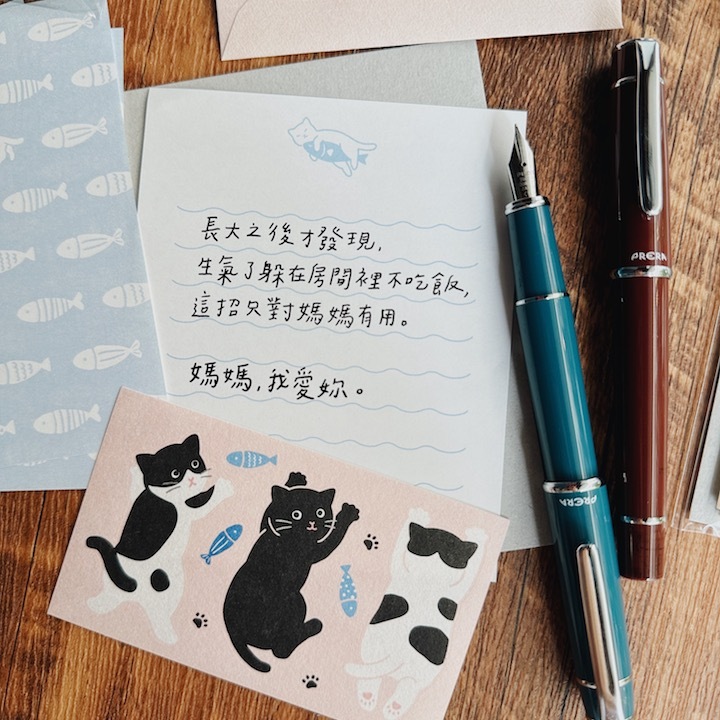 長大之後才發現,
生氣了躲在房間裡不吃飯,
這招只對媽媽有用。
媽媽,我愛妳。
PRERA
PRERA